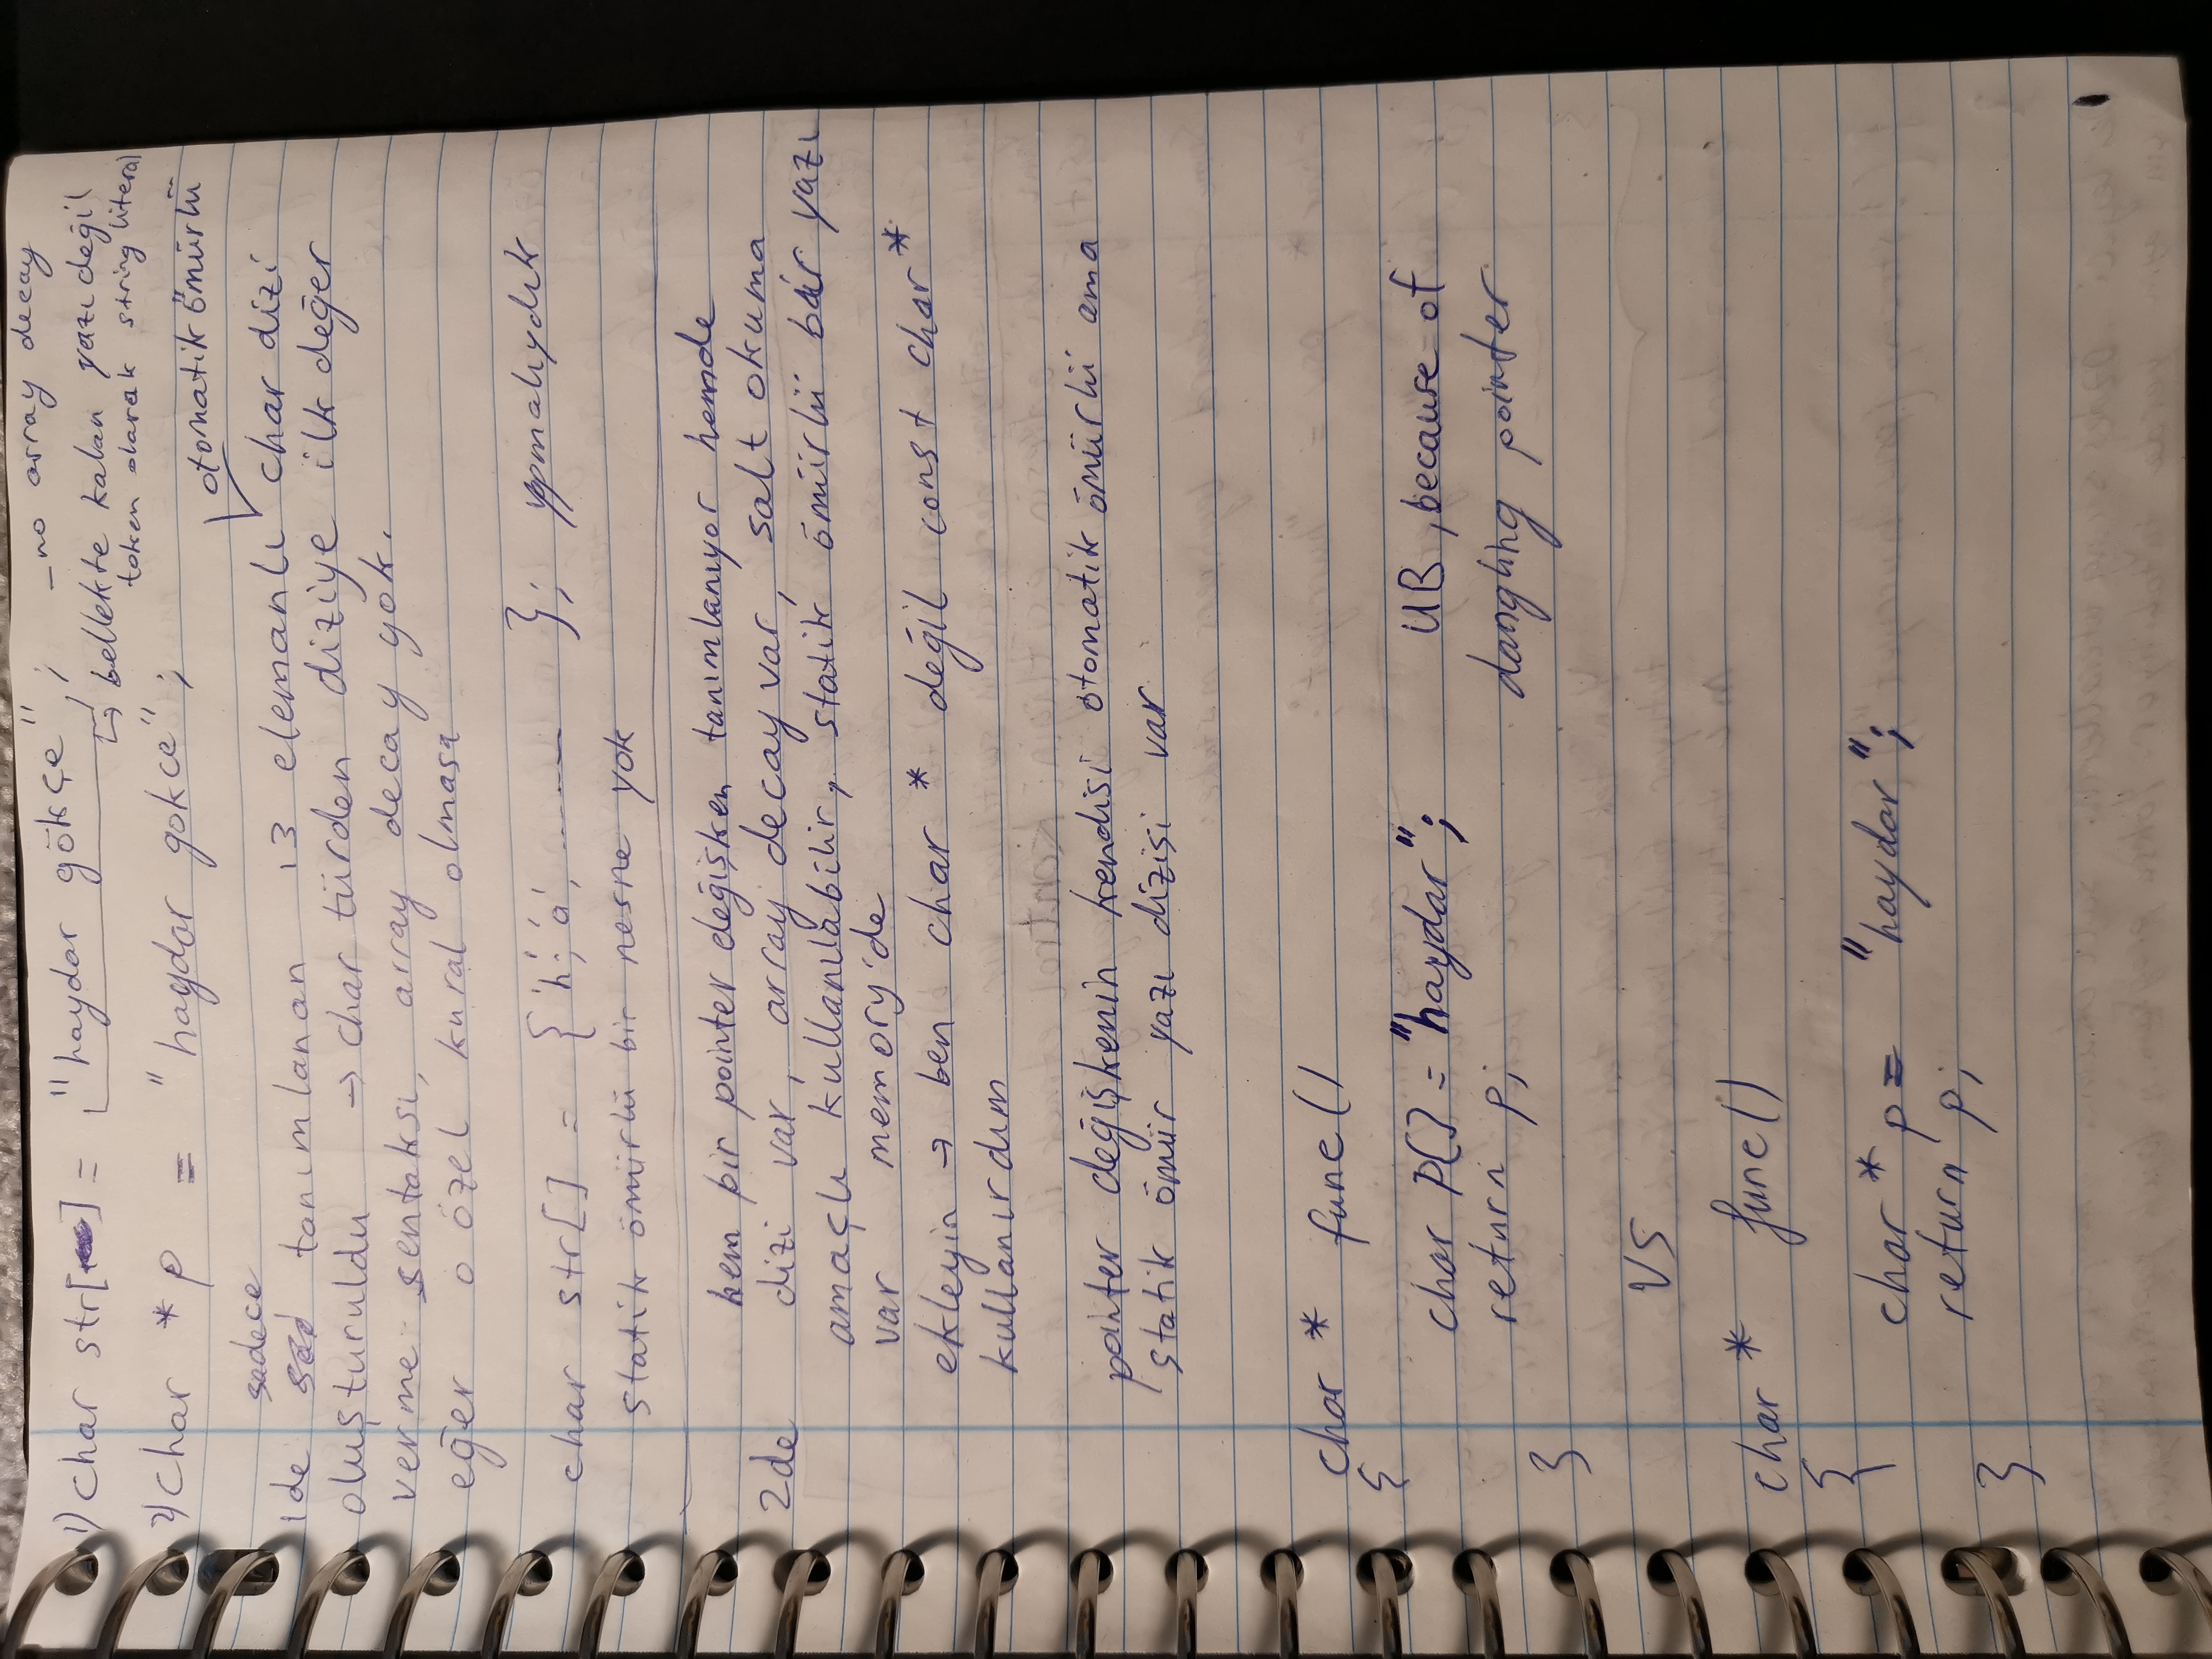 1) char str[] = "haydar gökçe"; _no array decay
↳ bellekte kalan yazı değil
token olarak string literal
2) char * p = "haydar gokce";
otomatik ömürlü
sadece
1de tanımlanan 13 elemanlı char dizi
oluşturuldu → char türden diziye ilk değer
verme sentaksı, array decay yok.
eğer o özel kural olmasa
char str[] = {'h', 'a', ........ }; yapmalıydık
statik ömürlü bir nesne yok
hem bir pointer değişken tanımlanıyor hemde
2de dizi var, array decay var, salt okuma
amaçlı kullanılabilir, statik ömürlü bir yazı
var memory'de
ekleyin → ben char * değil const char *
kullanırdım
pointer değişkenin kendisi otomatik ömürlü ama
statik ömür yazı dizisi var
char * func()
{
char p[] = "haydar"; UB, because of
return p; dangling pointer
}
VS
char * func()
{
char * p = "haydar";
return p;
}